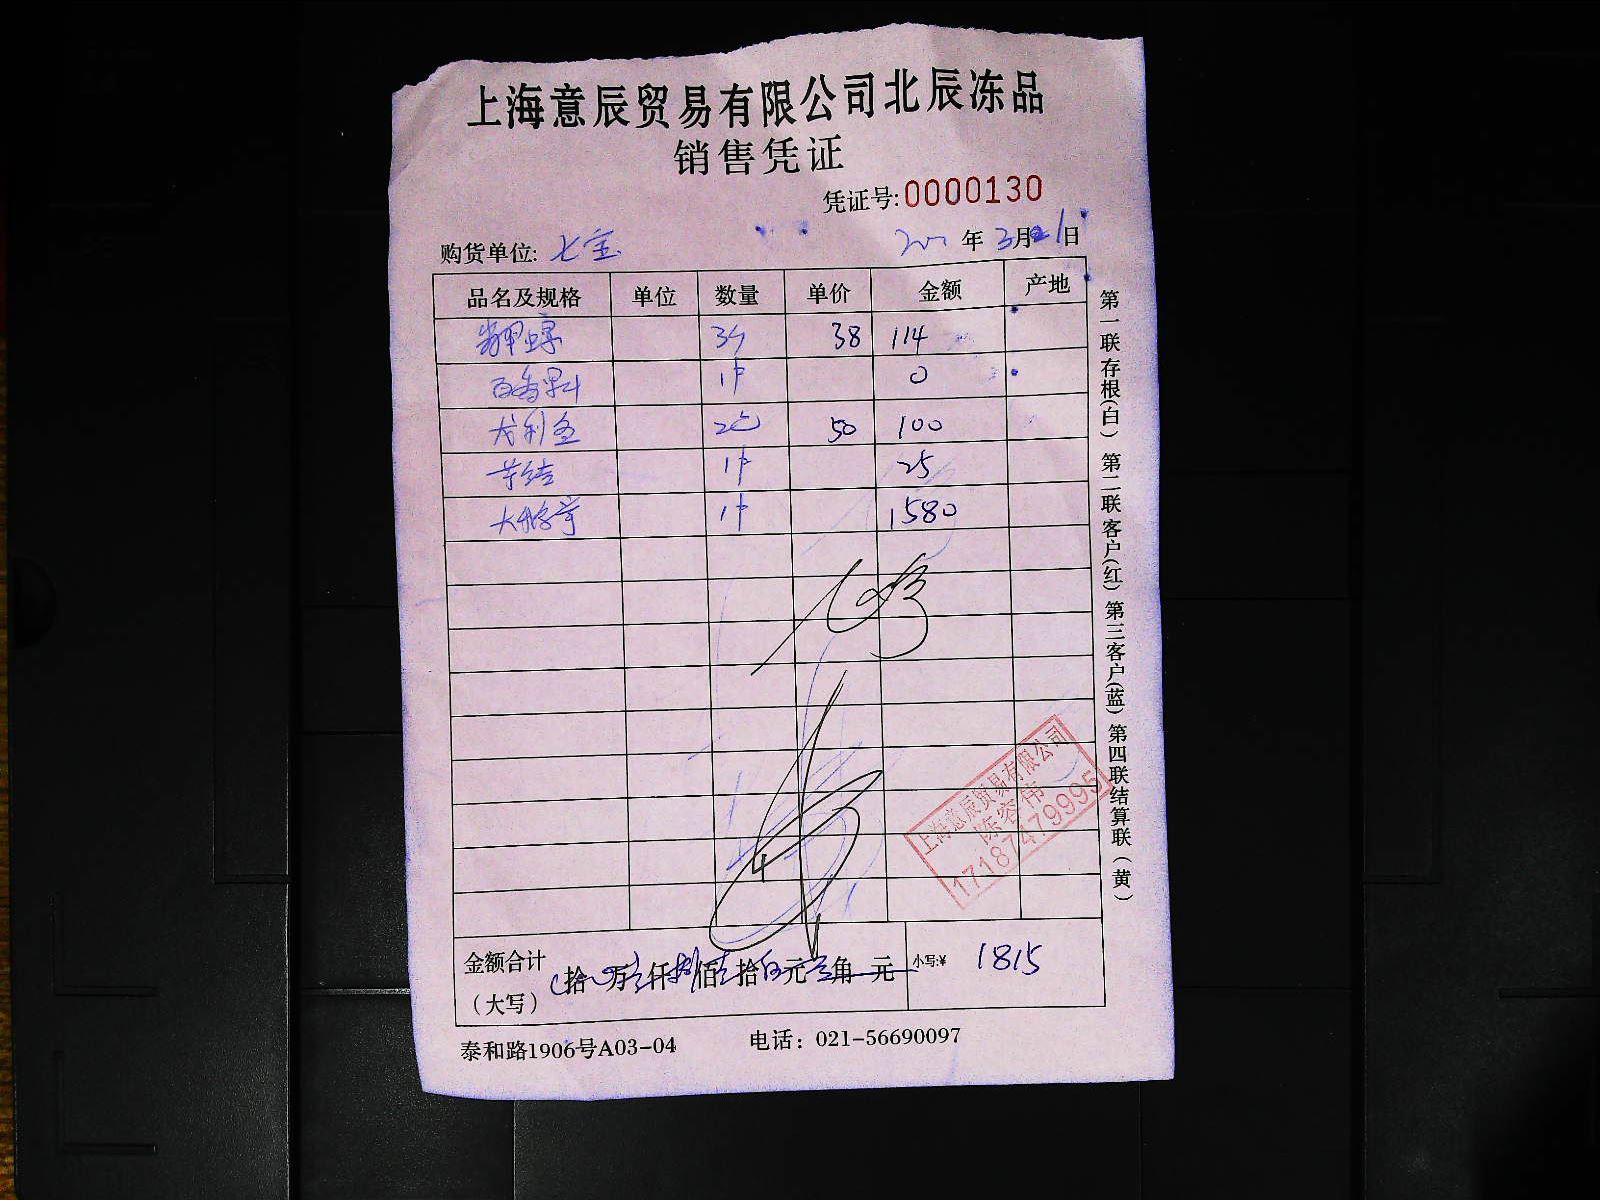 上海意辰贸易有限公司北辰冻品
销售凭证
凭证号:0000130
购货单位: 七宝 年 3月21日
品名及规格 单位 数量 单价 金额 产地
38 114
百香果汁 1件 0
戈利鱼 2包 50 100
芋结 1件 25
1件 1580
金额合计 拾 万 仟 佰 拾 元 角 元 小写:¥ 1815
(大写)
泰和路1906号A03-04 电话: 021-56690097
第一联存根(白) 第二联客户(红) 第三客户(蓝) 第四联结算联(黄)
上海意辰贸易有限公司
陈容伟
17187479995